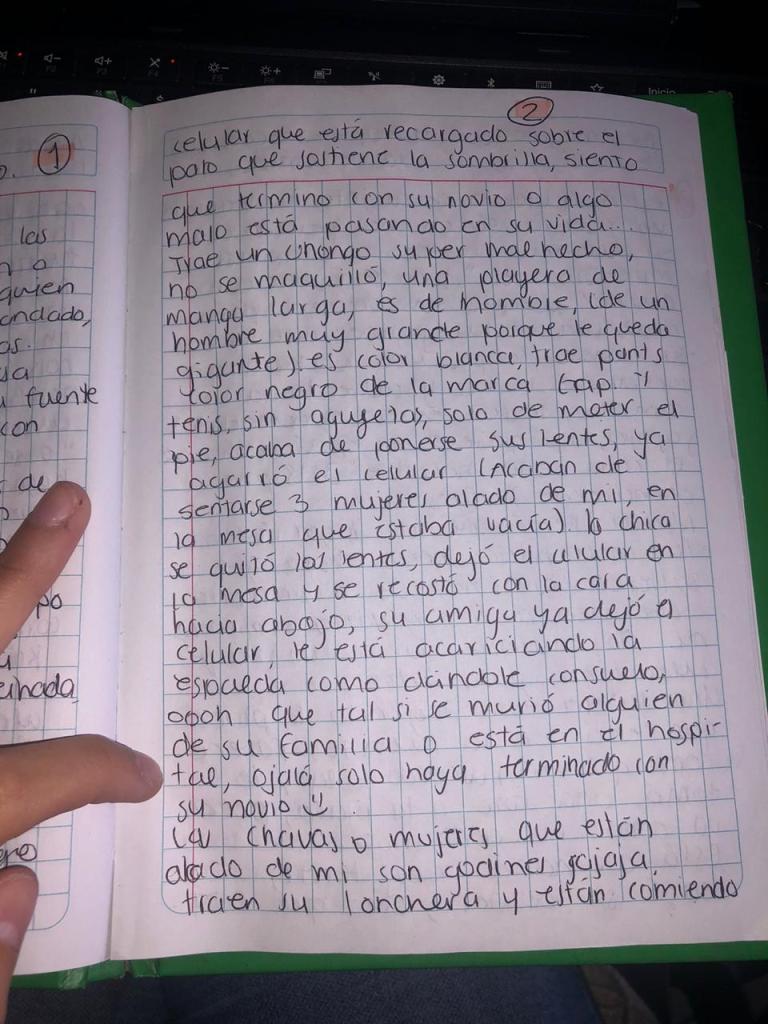 1
o.
las
n o
quien
andado,
os.
da
a fuente
con
de
po
a
cinada
ero
2
celular que está recargado sobre el
palo que sostiene la sombrilla, siento
que termino con su novio o algo
malo está pasando en su vida...
Trae un chongo super mal hecho,
no se maquilló, una playera de
manga larga, es de hombre, (de un
hombre muy grande porque le queda
gigante) es color blanca, trae pants
color negro de la marca Gap y
tenis, sin agujetas, solo de meter el
pie, acaba de ponerse sus lentes, ya
agarró el celular (Acaban de
sentarse 3 mujeres alado de mi, en
la mesa que estaba vacía) la chica
se quitó los lentes, dejó el celular en
la mesa y se recostó con la cara
hacia abajo, su amiga ya dejó el
celular, le está acariciando la
espalda como dándole consuelo,
oooh que tal si se murió alguien
de su familia o está en el hospi-
tal, ojalá solo haya terminado con
su novio
Las chavas o mujeres que están
alado de mi son godines jajaja
traen su lonchera y están comiendo
Inicio